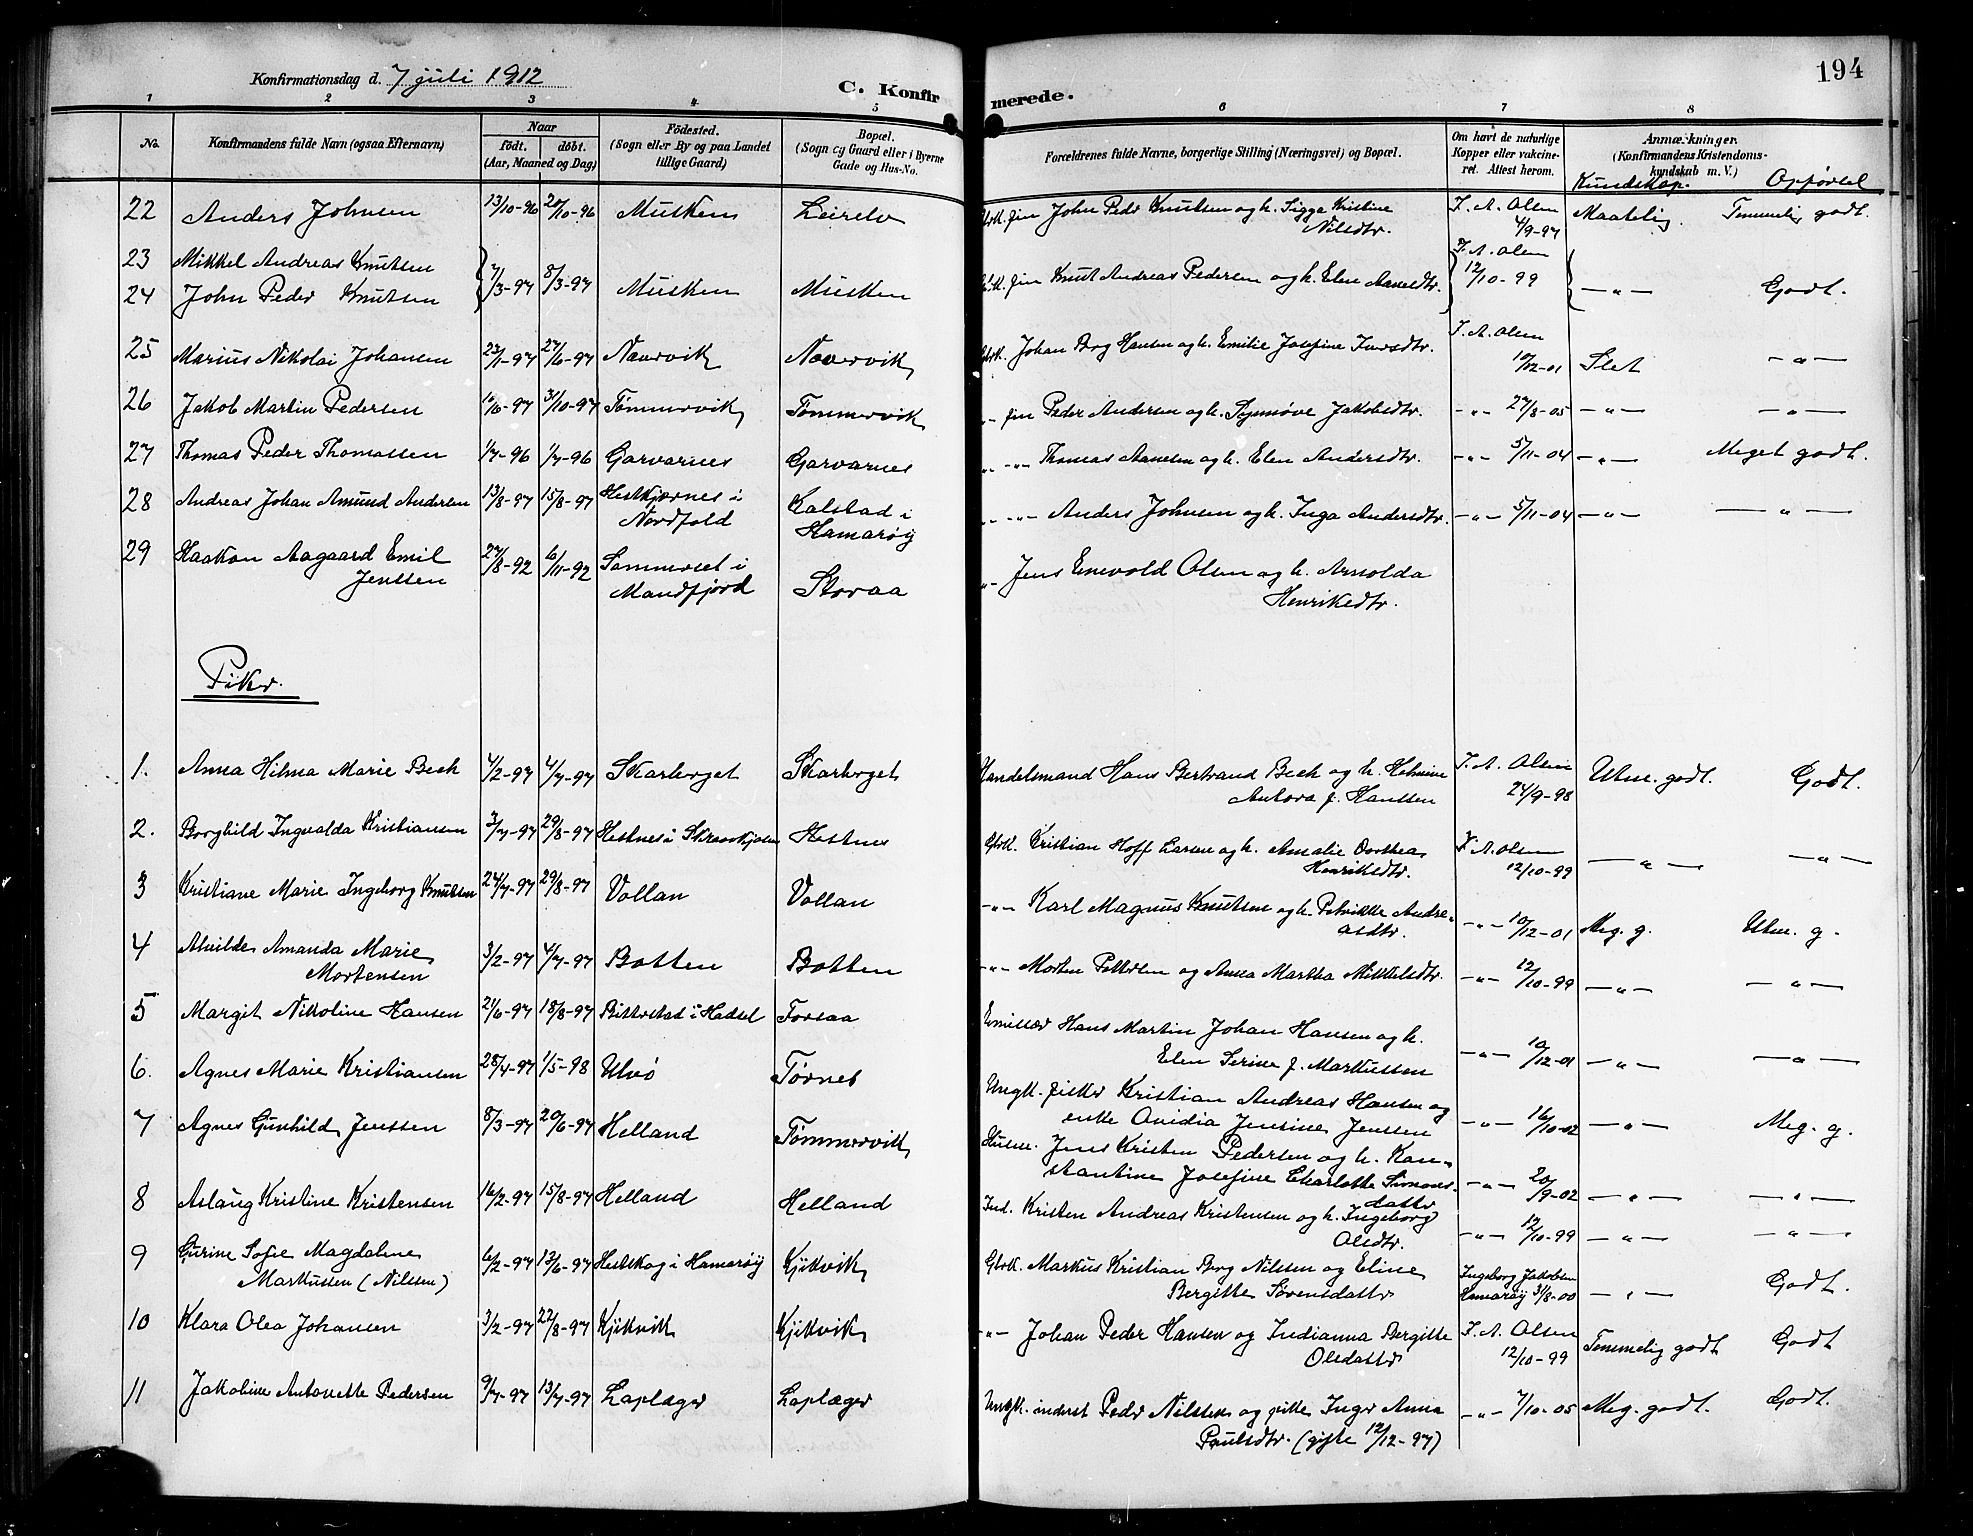 194
Konfirmationsdag d. 7 juli 1912
C. Konfirmerede.
1 2 3 4 5 6 7 8
No.
Konfirmandens fulde Navn (ogsaa Efternavn)
Naar
født. døbt.
(Aar, Maaned og Dag)
Fødested.
(Sogn eller By og paa Landet
tillige Gaard)
Bopæl.
(Sogn og Gaard eller i Byerne
Gade og Hus-No.
Forældrenes fulde Navne, borgerlige Stilling (Næringsvei) og Bopæl.
Om havt de naturlige
Kopper eller vakcine-
ret. Attest herom.
Anmærkninger.
(Konfirmandens Kristendoms-
kundskab m. V.)
Kundskap. Opførsel
22 Anders Johnsen 13/10-96 /10-96 Musken Leirelv Gbrk. fin John Peder Knutsen og h. Sigga Kristine
Nilsdtr. F. A. Olsen
4/9-97 Maatelig Temmelig godt.
23 Mikkel Andreas Knutsen
24 John Peder Knutsen 7/3-97 8/3-97 Musken Musken fin Knut Andreas Pedersen og h. Elen Aanesdtr. F. A. Olsen
12/10-99 -"- Godt.
25 Marius Nikolai Johansen 23/1-97 27/6-97 Nævervik Nævervik Gbrk. Johan Berg Hansen og h. Emilie Josefine Iversdtr. F. A. Olsen
10/12-01 Slet -"-
26 Jakob Martin Pedersen /6-97 31/10-97 Tømmervik Tømmervik -"- fin Peder Andersen og h. Synnøve Jakobsdtr. -"- 27/8-05 -"- -"-
27 Thomas Peder Thomassen 1/7-96 1/7-96 Garvarnes Garvarnes -"- -"- Thomas Aanesen og h. Elen Andersdtr. -"- 5/11-04 -"- Meget godt.
28 Andreas Johan Amund Andersen 13/8-97 15/8-97 Heskjærnes i
Nordfold Kalstad i
Hamarøy -"- -"- Anders Johnsen og h. Inga Andersdtr. -"- 5/11-04 -"- -"-
29 Haakon Aagaard Emil
Jenssen 27/8-92 6/11-92 Sommerset i
Mandfjord Storaa -"- Jens Enevold Olsen og h. Arnolda
Henriksdtr.
Piker.
1. Anna Hilma Marie Bech 4/2-97 4/7-97 Skarberget Skarberget Handelsmand Hans Bertrand Bech og h. Helmine
Antora f. Hanssen F. A. Olsen
24/9-98 Utm. godt. Godt.
2. Borghild Ingvalda Kristiansen 3/7-97 29/8-97 Hestnes i Skraavkjosen Hestnes Gbrk. Kristian Hoff Larsen og h. Amalie Dorthea
Henriksdtr. F. A. Olsen
12/10-99 -"- -"-
3 Kristiane Marie Ingeborg Knutsen 24/7-97 29/8-97 Vollan Vollan -"- Karl Magnus Knutsen og h. Petrikke Andre-
asdtr. -"- 10/12-01 Meg. g. Utm. g.
4 Alvilde Amanda Marie
Mortensen 3/2-97 4/7-97 Botten Botten -"- Morten Pettersen og Anna Martha Mikkelsdtr. -"- 12/10-99 -"- -"-
5 Margit Nikoline Hansen 21/6-97 18/8-97 Bitterstad i Hadsel Forsaa Emissær Hans Martin Johan Hansen og h.
Elen Serine f. Markussen -"- 10/12-01 -"- -"-
6. Agnes Marie Kristiansen 28/4-97 1/5-98 Ulvø Tørnes Ungk. fisker Kristian Andreas Hansen og
enke Ovidia Jensine Jenssen -"- 16/10-02 -"- Meg. g.
7 Agnes Gunhild Jenssen 8/3-97 20/6-97 Helland Tømmervik Husm. Jens Kristen Pedersen og h. Kon-
stantine Josefine Charlotte Simons-
datter -"- 20/9-02 -"- -"-
8 Aslaug Kristine Kristensen 16/2-97 15/8-97 Helland Helland Ind. Kristen Andreas Kristensen og h. Ingeborg
Olsdtr. -"- 12/10-99 -"- -"-
9 Gurine Sofie Magdalene
Markussen (Nilsen) 6/2-97 13/6-97 Hestskog i Hamarøy Kjikvik Gbrk. Markus Kristian Berg Nilsen og Eline
Bergitte Sørensdatter Ingeborg Jakobsen
Hamarøy 3/8-00 -"- Godt.
10 Klara Olea Johansen 3/2-97 22/8-97 Kjikvik Kjikvik -"- Johan Peder Hansen og Indianna Bergitte
Olsdatter F. A. Olsen
12/10-99 Temmelig godt Godt
11 Jakobine Antonette Pedersen 9/7-97 13/7-97 Laplæger Laplæger Ungk. inderst Peder Nilsen og pike Inger Anna
Paulsdtr. (gifte 12/12-97) -"- 7/10-05 Meg. godt. Godt.